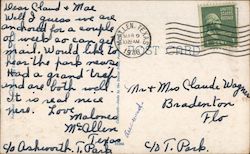 Dear Claud + Mae
Well I guess we are
anchored for a couple
of weeks so can get
mail. Would like to
hear the park news.
Had a grand trip
and are both well
It is real nice
here. Love
Malones
McAllen
Texas
c/o Ashworth T. Park
McALLEN, TEXAS
MAR 9
1938
POST CARD
Mr + Mrs Claude Wagner
Bradenton
Flo
c/o T. Park.